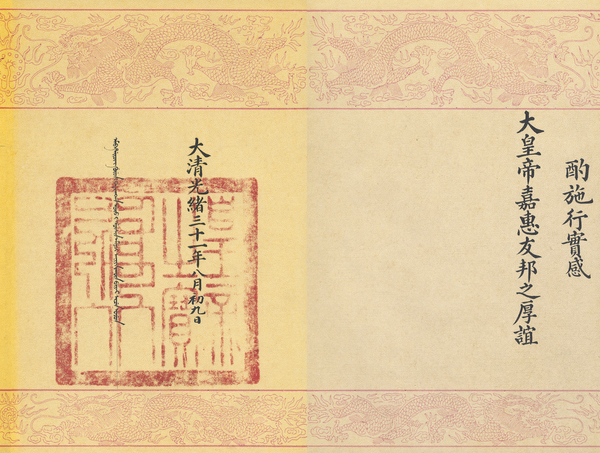 酌施行實感
大皇帝嘉惠友邦之厚誼
大清光緒三十一年八月初九日
皇帝之寶